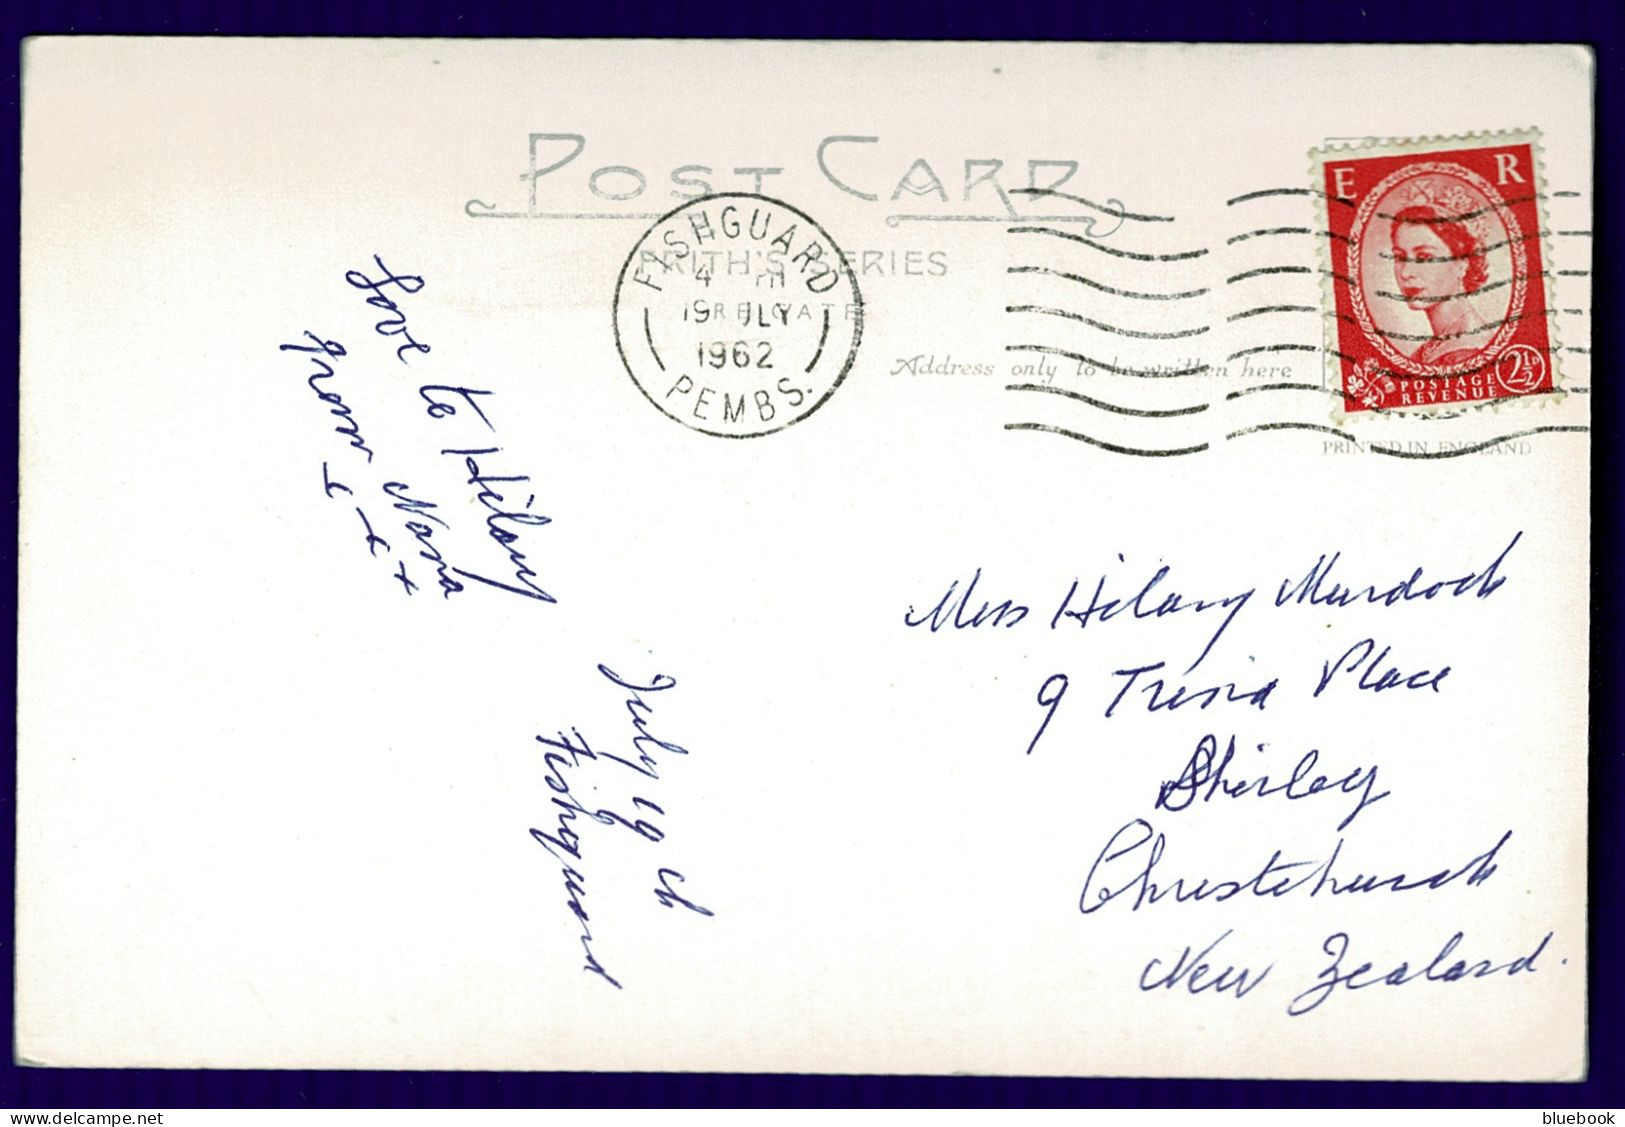 POST CARD
FRITH'S SERIES
REIGATE
Address only to be written here
PRINTED IN ENGLAND
FISHGUARD
4 PM
19 JLY
1962
PEMBS.
E R
POSTAGE
REVENUE
2½D
Love to Hilary
from Nana
x x +
July 19th
Fishguard
Miss Hilary Murdoch
9 Place
Shirley
Christchurch
New Zealand.
bluebook